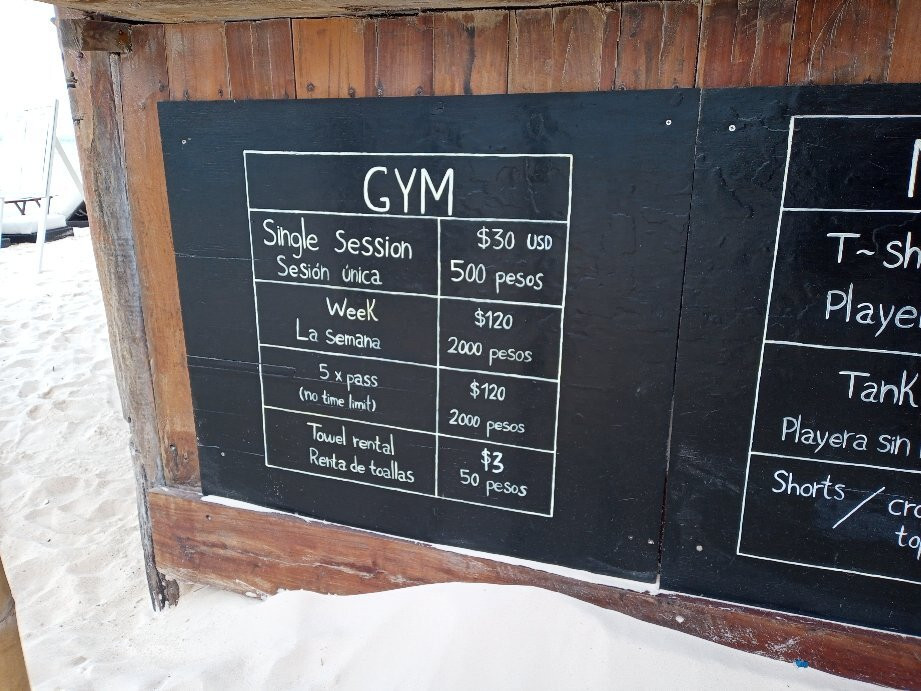 GYM
Single Session
Sesión única
$30 USD
500 pesos
Week
La Semana
$120
2000 pesos
5 x pass
(no time limit)
$120
2000 pesos
Towel rental
Renta de toallas
$3
50 pesos
T~sh
Playe
Tank
Playera sin
Shorts / cro
top